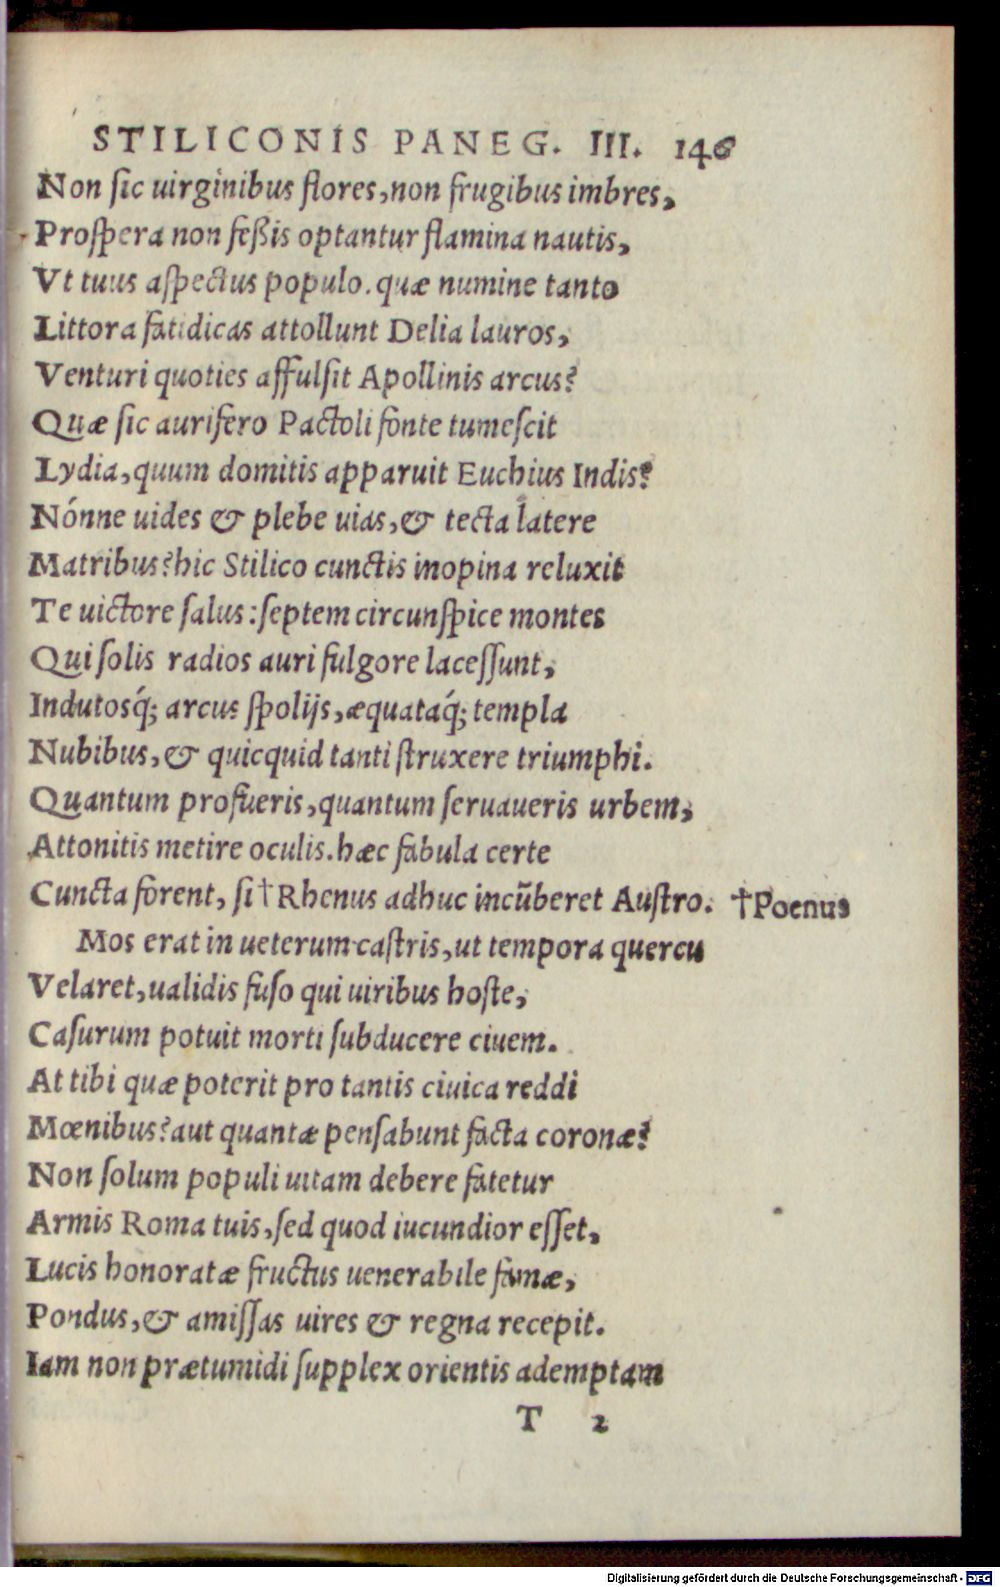 STILICONIS PANEG. III. 146
Non ſic uirginibus flores, non frugibus imbres,
Proſpera non feßis optantur flamina nautis,
Vt tuus aſpectus populo. quæ numine tanto
Littora fatidicas attollunt Delia lauros,
Venturi quoties affulſit Apollinis arcus?
Quæ ſic aurifero Pactoli fonte tumeſcit
Lydia, quum domitis apparuit Euchius Indis?
Nónne uides & plebe uias, & tecta latere
Matribus? hic Stilico cunctis inopina reluxit
Te uictore ſalus: ſeptem circunſpice montes
Qui ſolis radios auri fulgore laceſſunt,
Indutosq́; arcus ſpolijs, æquataq́; templa
Nubibus, & quicquid tanti ſtruxere triumphi.
Quantum profueris, quantum ſeruaueris urbem,
Attonitis metire oculis. hæc fabula certe
Cuncta forent, ſi †Rhenus adhuc incūberet Auſtro. †Poenus
Mos erat in ueterum caſtris, ut tempora quercu
Velaret, ualidis fuſo qui uiribus hoſte,
Caſurum potuit morti ſubducere ciuem.
At tibi quæ poterit pro tantis ciuica reddi
Mœnibus? aut quantæ penſabunt facta coronæ?
Non ſolum populi uitam debere fatetur
Armis Roma tuis, ſed quod iucundior eſſet,
Lucis honoratæ fructus uenerabile famæ,
Pondus, & amiſſas uires & regna recepit.
Iam non prætumidi ſupplex orientis ademptam
T 2
Digitalisierung gefördert durch die Deutsche Forschungsgemeinschaft - DFG